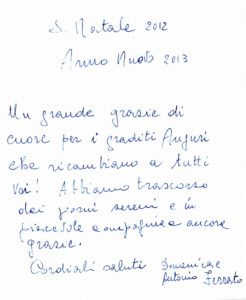 S. Natale 2012
Anno Nuovo 2013
Un grande grazie di
cuore per i graditi Auguri
che ricambiamo a tutti
voi! Abbiamo trascorso
dei giorni sereni e in
piacevole compagnia ancora
grazie.
Cordiali saluti Domenica e
Antonio Ferrato